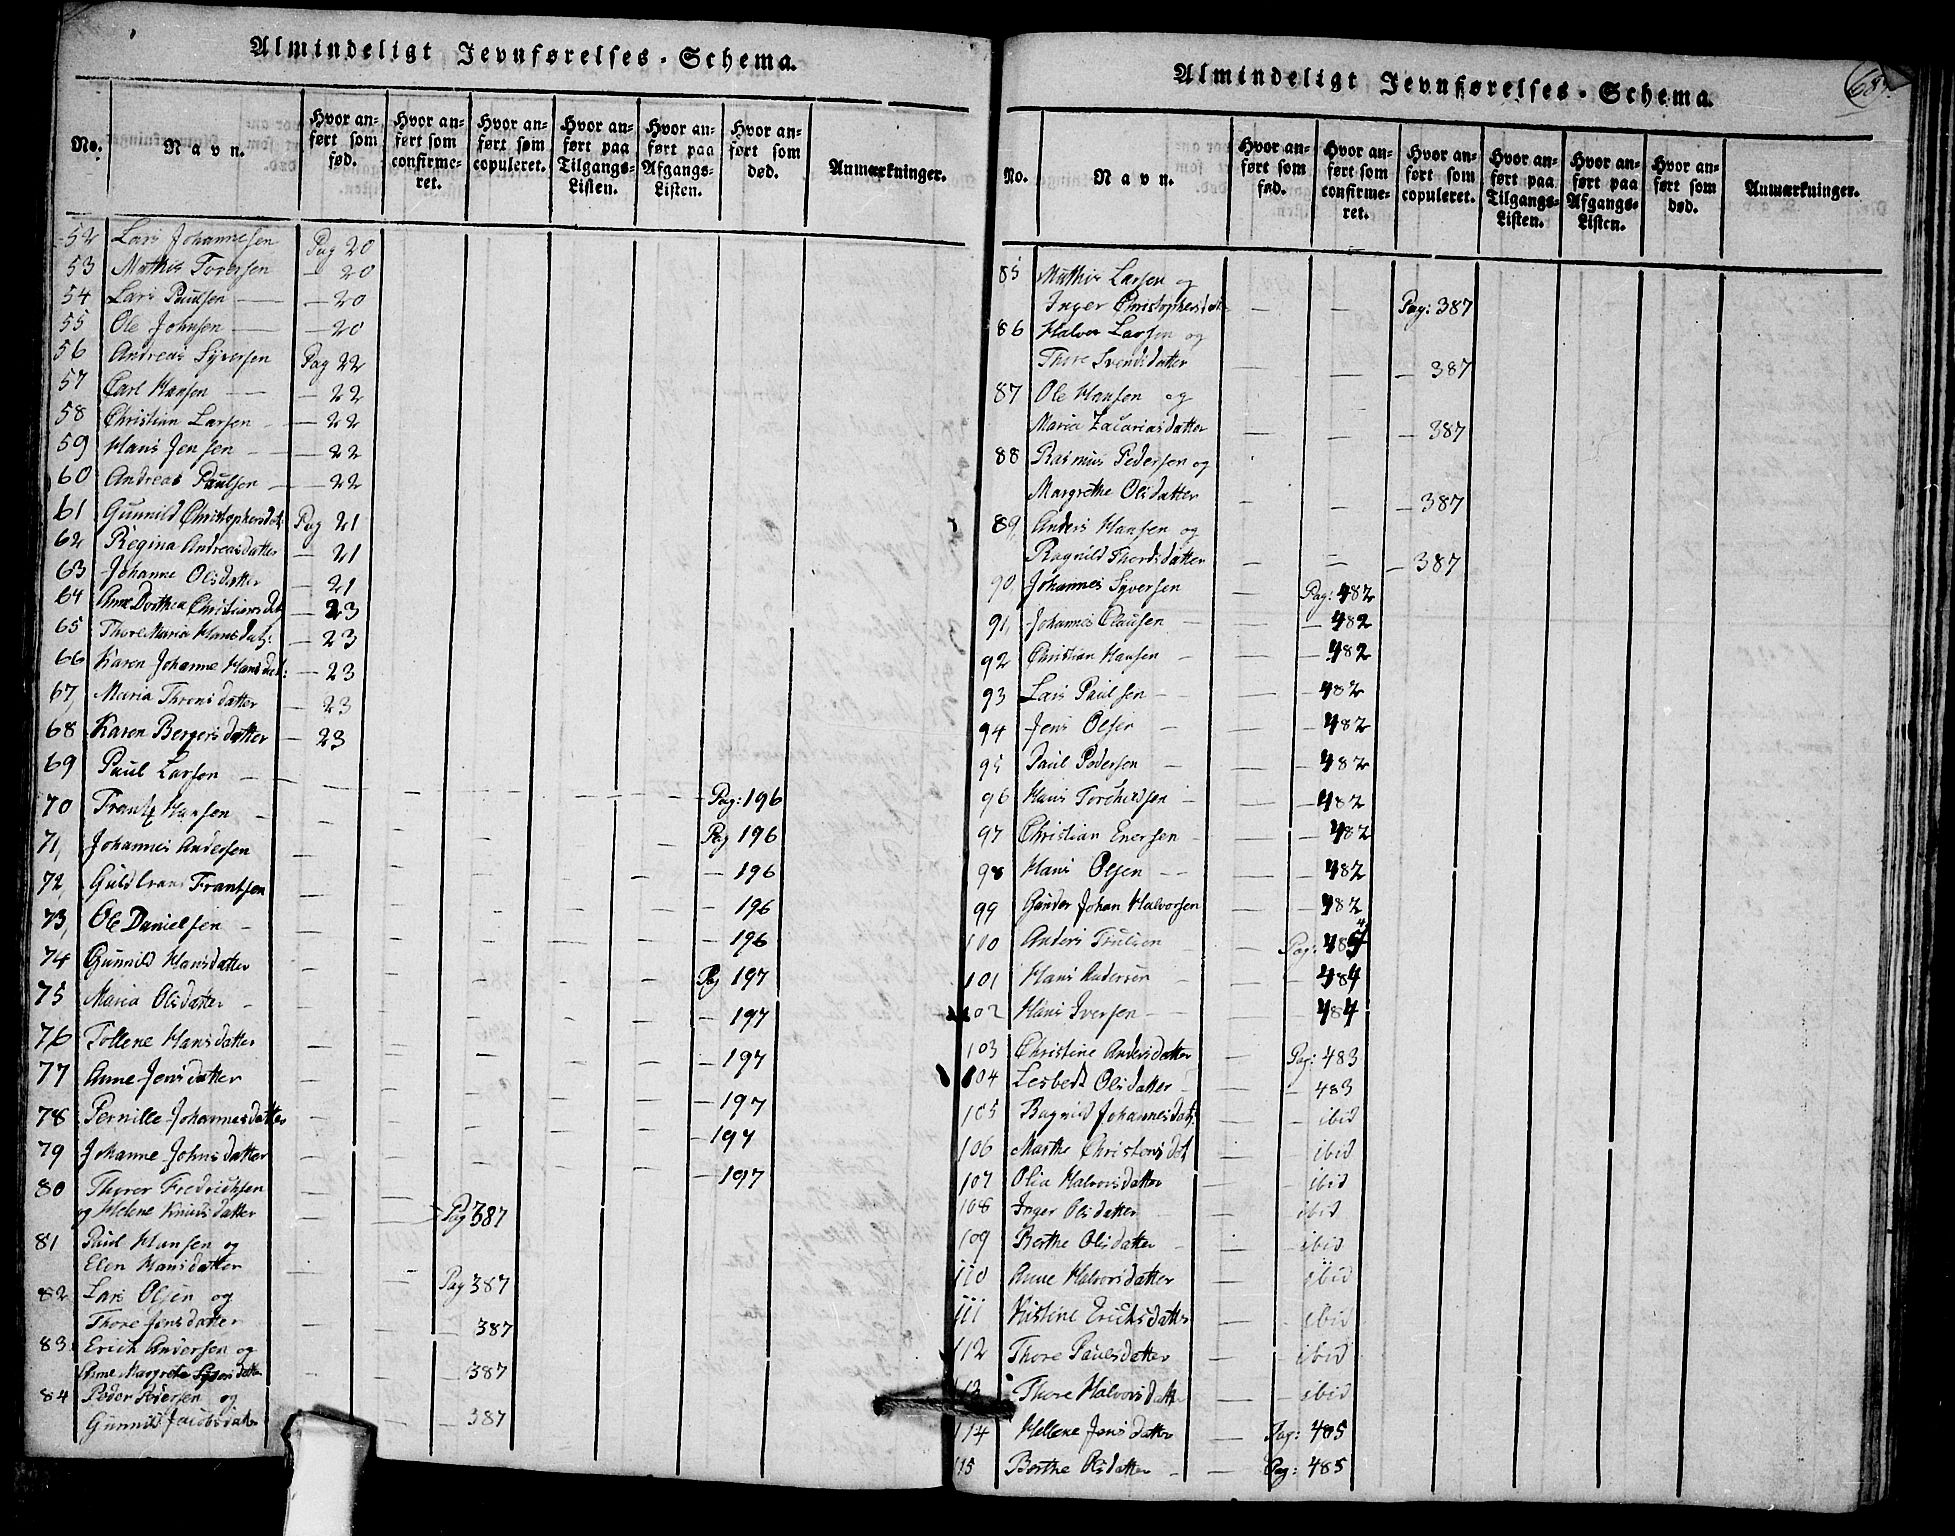 Almindeligt Jevnførelses-Schema.
No. Navn. Hvor anført som fød. Hvor anført som confirmeret. Hvor anført som copuleret. Hvor anført paa Tilgangs-Listen. Hvor anført paa Afgangs-Listen. Hvor anført som død. Anmærkninger.
52 Lars Johannesen Pag 20
53 Mathis Toversen — 20
54 Lars Paulsen — — 20
55 Ole Johnsen — — 20
56 Andreas Syversen Pag 22
57 Carl Hansen — — 22
58 Christian Larsen — — 22
59 Hans Jensen — — 22
60 Andreas Paulsen — — 22
61 Gunnild Christophersdat. Pag 21
62 Regina Andreasdatter — 21
63 Johanne Olsdatter — 21
64 Anne Dorthea Christiansdat — 23
65 Thore Maria Hansdat: — 23
66 Karen Johanne Hansdat: — 23
67, Maria Thronsdatter — 23
68 Karen Bergersdatter — 23
69 Paul Larsen — — — — — — — Pag: 196
70 Frantz Hansen — — — — — — Pag 196
71, Johannes Andersen — — — — — — 196
72, Guldbrand Frantsen — — — — — — 196
73, Ole Danielsen — — — — — — — 196
74 Gunnild Hansdatter — — — — — Pag 197
75 Maria Olsdatter — — — — — — — 197
76 Tollene Hansdatter — — — — — — 197
77 Anne Jensdatter — — — — — — 197
78 Pernille Johannesdatter — — — — — — 197
79 Johanne Johnsdatter — — — — — — 197
80 Thorer Fredrichsen
og Helene Knudsdatter — — Pag 387
81 Paul Hansen og
Elen Hansdatter — — Pag 387
82 Lars Olsen og
Thore Jensdatter — — — 387
83 Erich Andersen og
Anne Margrete — — — 387
84 Peder Pedersen og
Gunnild Jacobsdatter — — 387
Almindeligt Jevnførelses-Schema.
687.
No. Navn. Hvor anført som fød. Hvor anført som confirmeret. Hvor anført som copuleret. Hvor anført paa Tilgangs-Listen. Hvor anført paa Afgangs-Listen. Hvor anført som død. Anmærkninger.
85 Mathis Larsen og
Inger Christophersdat — — Pag: 387
86 Halvor Larsen og
Thore Svendsdatter — — — 387
87 Ole Hansen og
Maria Zacariasdatter — — — 387
88 Rasmus Pedersen og
Margrethe Olsdatter — — — 387
89, Anders Hansen og
Ragnild Thordsdatter — — — 387
90, Johannes Syversen — Pag: 482
91, Johannes Clausen — — — 482
92 Christian Hansen — — — 482
93 Lars Paulsen — — — 482
94 Jens Olsen — — — 482
95 Paul Pedersen — — — 482
96 Hans — — — 482
97 Christian Enersen — — — 482
98 Hans Olsen — — — — 482
99 Gunder Johan Halvorsen — — 482
100 Anders Trulsen — Pag: 484
101 Hans Andersen — — 484
102 Hans Iversen — — — 484
103 Christine Andersdatter — Pag: 483
104 Lesbeth Olsdatter — — — 483
105 Ragnild Johannesdat: — — ibid
106 Marthe Christensdat — — ibid
107 Olia Halvorsdatter — — ibid
108 Inger Olsdatter — ibid
109 Berthe Olsdatter — — — ibid
110 Anne Halvorsdatter — — ibid
111 Kistine Erichsdatter — — ibid
112 Thore Paulsdatter — — ibid
113 Thore Halvorsdatter — — ibid
114 Hellene Jensdatter — Pag: 485
115 Berthe Olsdatter — — Pag: 485